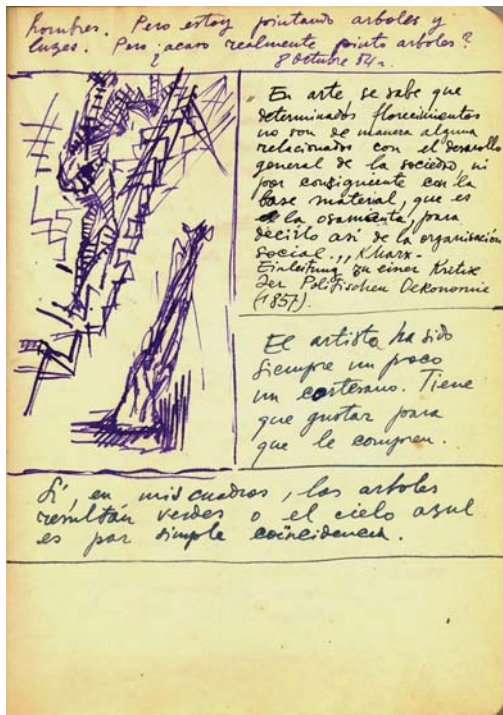 hombres. Pero estoy pintando arboles y
luzes. Pero ¿acaso realmente pinto arboles?
? 8 Octubre 54.
„ En arte se sabe que
determinados florecimientos
no son de manera alguna
relacionados con el desarollo
general de la sociedad, ni
por consiguiente con la
base material, que es
la osamenta, para
decirlo así de la organisación
social.„ K Marx-
Einleitung zu einer Kritik
Der Politischen Oekonomie
(1857).
El artista ha sido
siempre un poco
un cortesano. Tiene
que gustar para
que le compren.
Si, en mis cuadros, los arboles
resultan verdes o el cielo azul
es por simple coïncidencia.